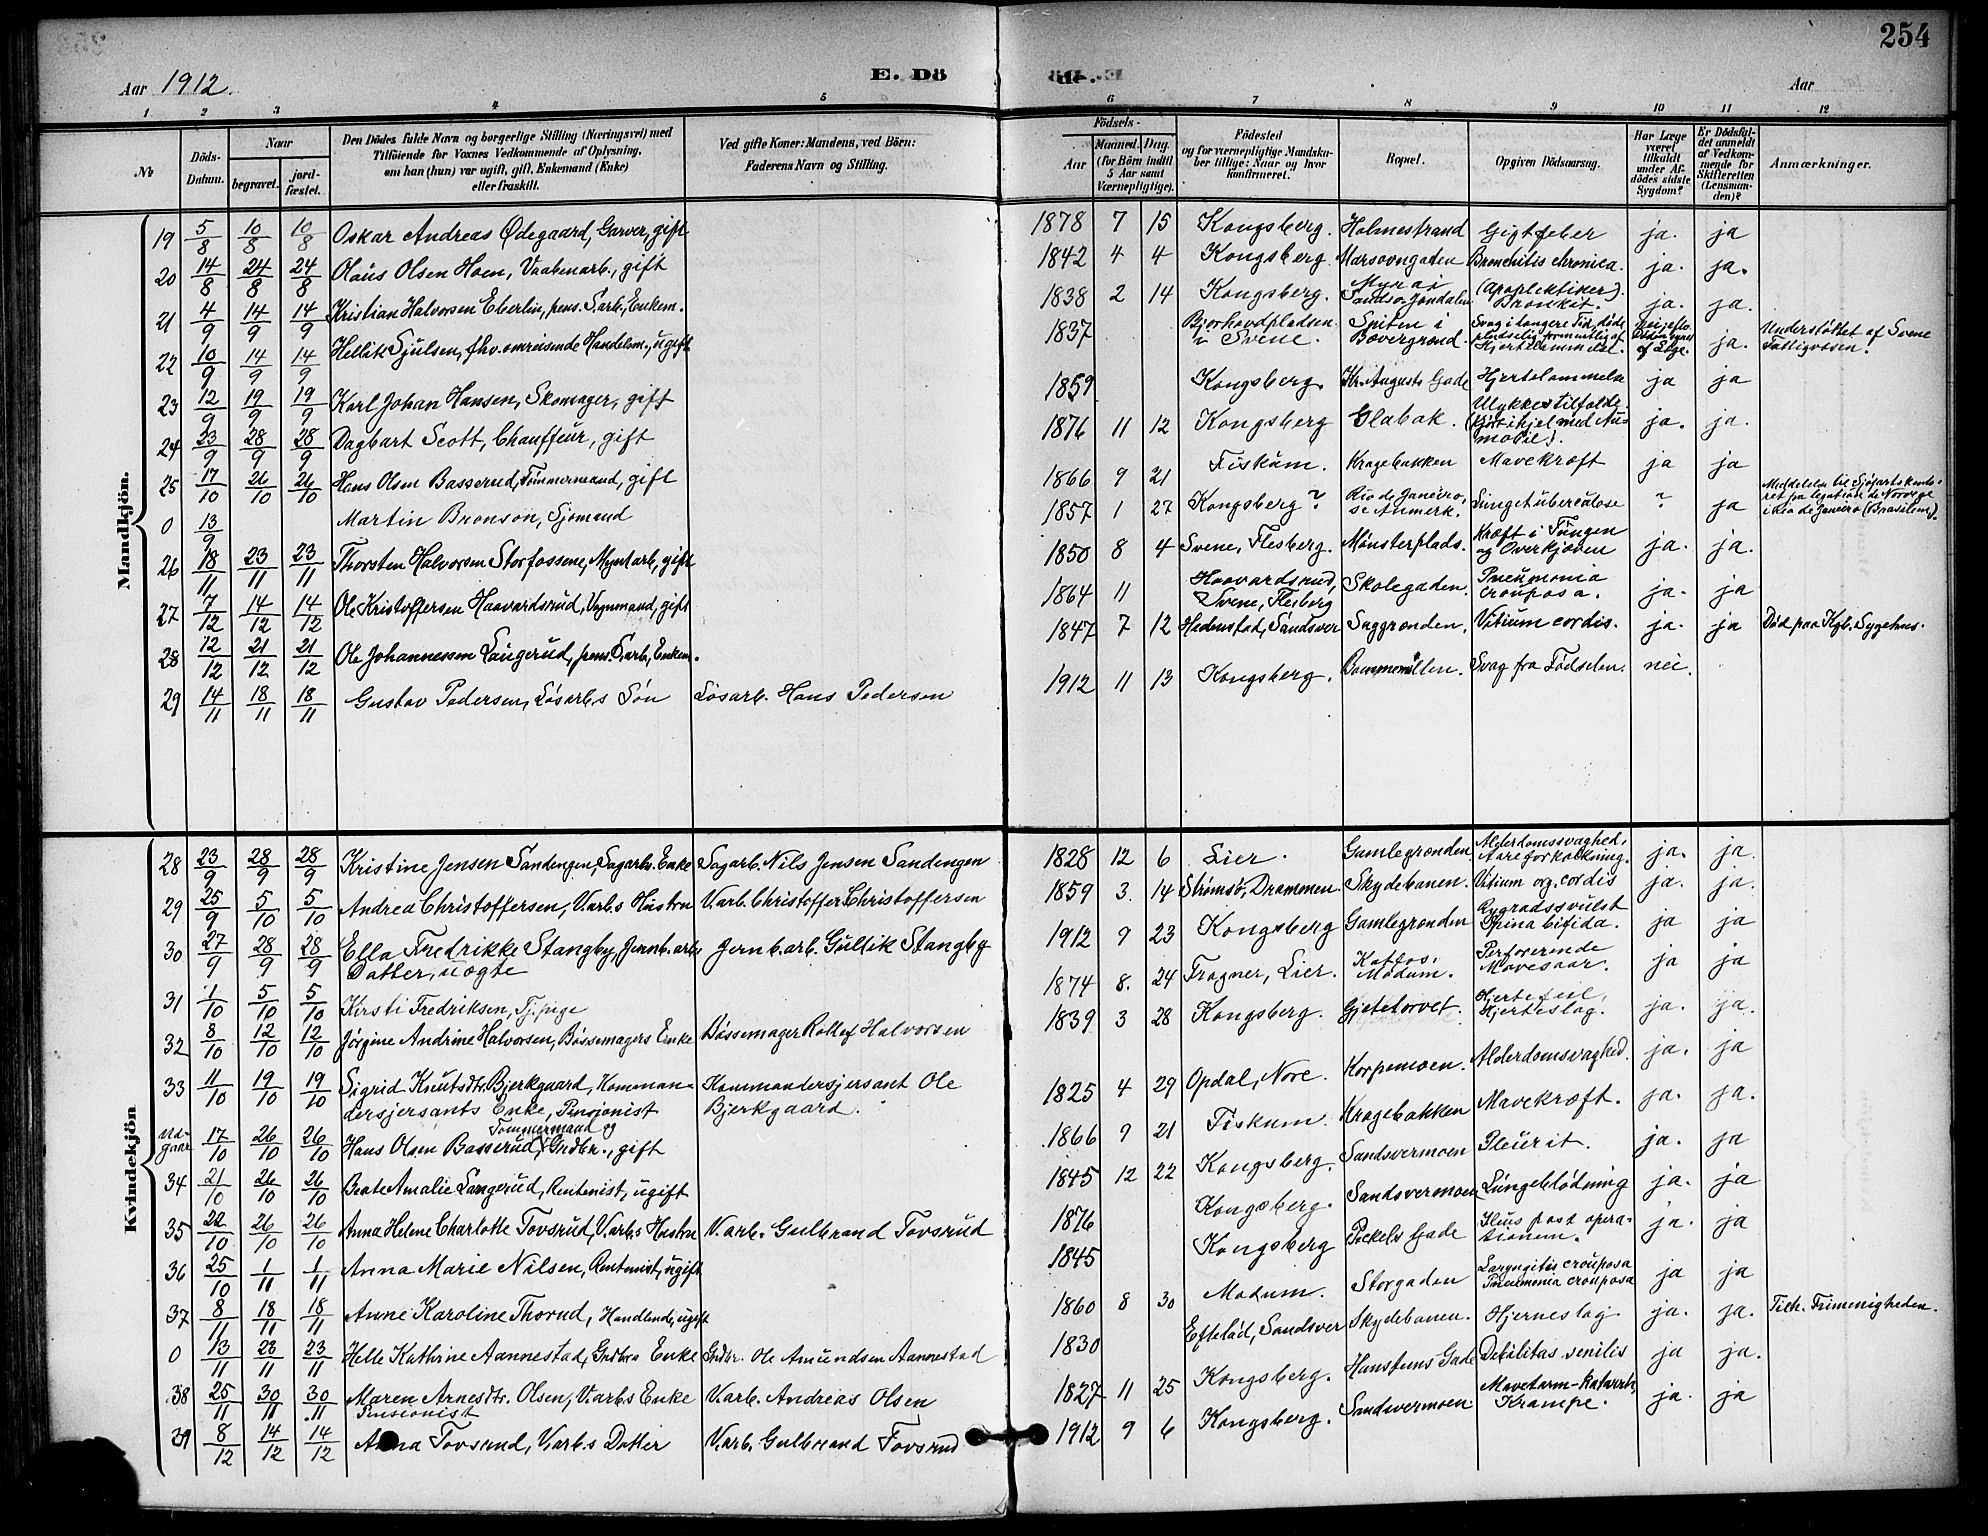 254
Aar 1912.
E. Dö
de.
Aar
1 2 3 4 5 6 7 8 9 10 11 12
No
Döds-Datum.
Naar
begravet.
jord-fæstet.
Den Dödes fulde Navn og borgerlige Stilling (Næringsvei) med
Tilföiende for Voxnes Vedkommende af Oplysning,
om han (hun) var ugift, gift, Enkemand (Enke)
eller fraskilt.
Ved gifte Koner: Mandens, ved Börn:
Faderens Navn og Stilling.
Födsels-
Aar
Maaned. Dag.
(for Börn indtil
5 Aar samt
Værnepligtige).
Födested
og for værnepligtige Mandska-
ber tillige: Naar og hvor
konfirmeret.
Bopæl.
Opgiven Dödsaarsag.
Har Læge
været
tilkaldt
under Af-
dödes sidste
Sygdom?
Er Dödsfal-
det anmeldt
af Vedkom-
mende for
Skifteretten
(Lensman-
den)?
Anmærkninger.
Mandkjön.
19 5/8 10/8 10/8 Oskar Andreas Ødegaard, Garver, gift 1878 7 15 Kongsberg. Holmestrand Gigtfeber ja. ja
20 14/8 24/8 24/8 Olaus Olsen Hoen, Vaabenarb., gift 1842 4 4 Kongsberg Marsovngaden Bronchitis chronica. ja. ja.
21 4/9 14/9 14/9 Kristian Halvorsen Eberlin, pens. S.arb., Enkem. 1838 2 14 Kongsberg. Myra i Sandsv. Jondalen (Apoplektiker). Bronkit ja. ja.
22 10/9 14/9 14/9 Hellik Sjulsen, fhv. omreisende Handelsm., ugift 1837 Bjørhovdpladsen i Svene. Spiten i Bævergrænd. Svag i længere Tid, døde pludselig, formentlig af Hjertelammelse. af Læge. ja. Understøttet af Svene Fattigvæsen.
23 12/9 19/9 19/9 Karl Johan Hansen, Skomager, gift 1859 Kongsberg. Kr. Augusts Gade Hjertelammelse ja ja
24 23/9 28/9 28/9 Dagbart Scott, Chauffeur, gift 1876 11 12 Kongsberg Glabak. Ulykkestilfælde (kjørt ihjel med Au- mobil). ja. ja.
25 17/10 26/10 26/10 Hans Olsen Basserud, Tømmermand, gift 1866 9 21 Fiskum. Kragebakken Mavekræft ja ja
0 13/9 Martin Bronson, Sjømand 1857 1 27 Kongsberg? Rio de Janeiro, se Anmerk. Lungetuberculose ? ja Meddelelse til Sjøfartskonto- ret fra legation de Norvege i Rio de Janeiro (Brasilien).
26 18/11 23/11 23/11 Thorsten Halvorsen Storfossene, Myntarb., gift 1850 8 4 Svene, Flesberg. Mønsterplads. Kræft i Tungen og Overkjæven ja. ja.
27 7/12 14/12 14/12 Ole Kristoffersen Haavardsrud, Vognmand, gift 1864 11 Haavardsrud, Svene, Flesberg Skolegaden. Pneumonia crouposa. ja. ja
28 12/12 21/12 21/12 Ole Johannessen Langerud, pens. S.arb., Enkem. 1847 7 12 Hedenstad, Sandsver Saggrænden. Vitium cordis. ja. ja Død paa Kgb. Sygehus.
29 14/11 18/11 18/11 Gustav Pedersen, Løsarb.s Søn Løsarb. Hans Pedersen 1912 11 13 Kongsberg. Svag fra Fødselen. nei.
Kvindekjön
28 23/9 28/9 28/9 Kristine Jensen Sandengen, Sagarb.s Enke Sagarb. Nils Jensen Sandengen 1828 12 6 Lier. Gamlegrænden Alderdomssvaghed, Aareforkalkning. ja. ja.
29 25/9 5/10 5/10 Andrea Christoffersen, V.arb.s Hustru V.arb. Christoffer Christoffersen 1859 3. 14 Strømsø, Drammen. Skydebanen. Vitium org. cordis ja. ja.
30 27/9 28/9 28/9 Ella Fredrikke Stangby, Jernb.arb.s Datter, uægte Jernb.arb. Gullik Stangby 1912 9 23 Kongsberg Gamlegrænden Rygradssvulst Spina bifida. ja ja
31 1/10 5/10 5/10 Kirsti Fredriksen, Tj.pige 1874 8. 24 Fragner, Lier. Kattfos, Modum. Perforerende Mavesaar. ja ja
32 8/10 12/10 12/10 Jørgine Andrine Halvorsen, Bøssemagers Enke Bøssemager Rollef Halvorsen 1839 3 28 Kongsberg. Gjetetorvet. Hjertefeil, Hjerteslag. ja. ja.
33 11/10 19/10 19/10 Sigrid Knutsdtr. Bjerkgaard, Komman- dersjersants Enke, Pensionist Kommandersjersant Ole Bjerkgaard. 1825 4 29 Opdal, Nore. Korpemoen. Alderdomsvaghed. ja. ja
Ud- gaar 17/10 26/10 26/10 Hans Olsen Basserud, Tømmermand og Grdbr., gift 1866 9 21 Fiskum. Kragebakken Mavekræft. ja. ja.
34 21/10 26/10 26/10 Beate Amalie Langerud, Rentenist, ugift 1845 12 22 Kongsberg. Sandsvermoen Pleurit. ja. ja
35 22/10 26/10 26/10 Anna Helene Charlotte Tovsrud, V.arb.s Hustru V.arb. Gulbrand Tovsrud 1876 Kongsberg. Sandsvermoen Lungeblødning ja. ja
36 25/10 1/11 1/11 Anna Marie Nilsen, Rentenist, ugift 1845 Kongsberg Peckels Gade Ileus post opera- tionem. ja. ja
37 8/11 18/11 18/11 Anne Karoline Thorud, Handlende, ugift 1860 8 30 Modum. Storgaden Laryngitis crouposa Pneumonia crouposa ja ja
0 13/11 23/11 23/11 Helle Kathrine Aannestad, Grdbr.s Enke Grdbr. Ole Amundsen Aannestad 1830 Efteløt, Sandsver Skydebanen. Hjerneslag ja. ja. Tilh. Frimenigheden.
38 25/11 30/11 30/11 Maren Arnesdtr. Olsen, V.arb.s Enke Pensionist V.arb. Andreas Olsen 1827 11 25 Kongsberg. Hansteens Gade Debilitas senilis ja ja.
39 8/12 14/12 14/12 Anna Tovsrud, V.arb.s Datter V.arb. Gulbrand Tovsrud 1912 9 6 Kongsberg. Sandsvermoen Mavetarm-katarrh, Krampe. ja. ja